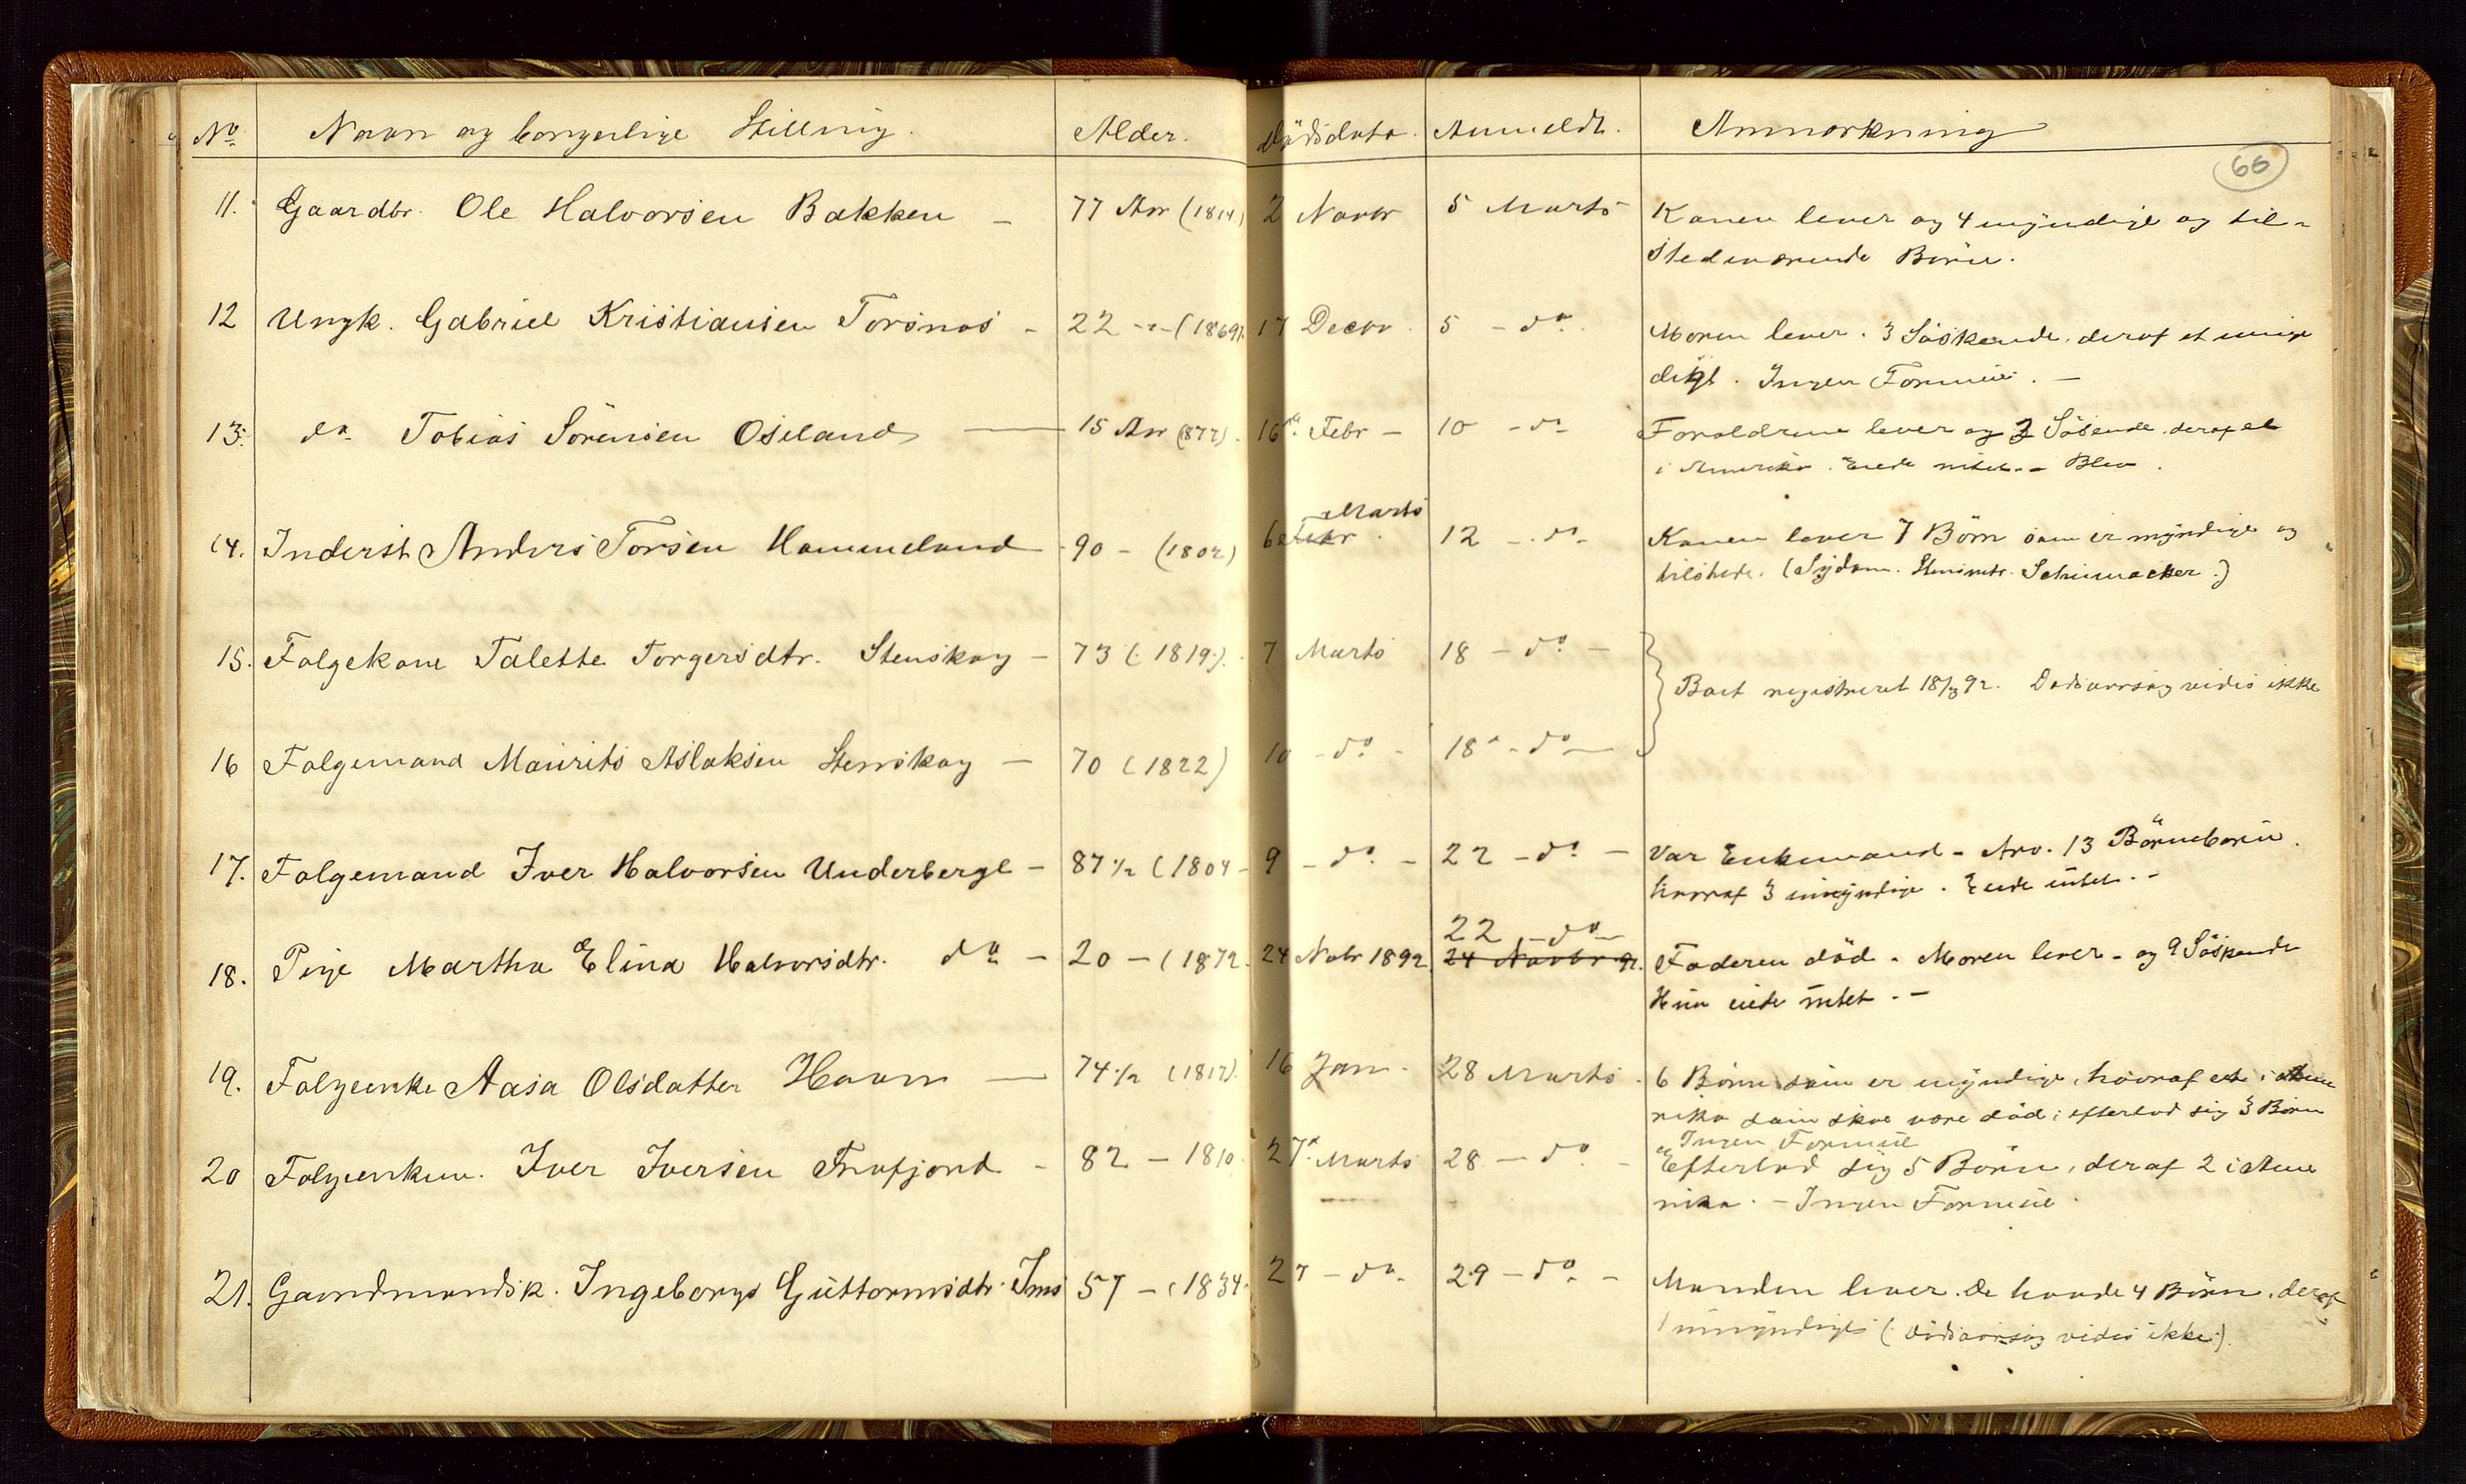 No. Navn og borgerlige Stilling. Alder. Dödsdato. Anmeldt. Anmærkning
66
11. Gaardbr. Ole Halvorsen Bakken – 77 Aar (1814) 2 Novbr 5 Marts Konen lever og 4 myndige og til-
stedeværende Börn.
12 Ungk. Gabriel Kristiansen Torsnes – 22 -"- (1869). 17 Decbr. 5 – do. Moren lever. 3 Söskende, deraf et
digt. Ingen Formue. –
13. do. Tobias Sörensen Oseland — 15 Aar (877). 16de Febr – 10 – do Forældrene lever og 3 deraf et
i Amerika. Eiede intet. –
Marts
14. Inderst Anders Torsen Hammeland 90 – (1802) 6 Febr. 12 – do – Konen lever 7 Börn som er myndige og
tilstede. (Sygdom. Schumacker.)
15. Folgekone Talette Torgersdtr. Stenskog – 73 (1819). 7 Marts 18 – do. –
Boet registreret 18/3 92. Dödsaarsag vides ikke
16 Folgemand Mauritz Aslaksen Stenskog – 70 (1822) 10 – do – 18 – do –
17. Folgemand Iver Halvorsen Underberge – 87 1/2 (1804 – 9 – do. – 22 – do. – Var Enkemand – Arv. 13 Börneborn.
hvoraf 3 umyndige. Eiede intet. –
22 – do –
18. Pige Martha Elina Halvorsdtr. do – 20 – (1872. 24 Novbr 1892. 24 Novbr 92. Faderen död. Moren lever – og 9 Söskende
Hun eiede intet. –
19. Folgeenke Aasa Olsdatter Haavn — 74 1/2 (1817). 16 Jan. 28 Marts. 6 Börn som er myndige, hvoraf et i Ame
rika som skal være död; efterlod sig 3 Börn
Ingen Formue
20 Folgeenkem. Iver Iversen Frafjord – 82 – 1810. 27. Marts 28 – do – Efterlod sig 5 Börn, deraf 2 i Ame
rika. – Ingen Formue.
21. Gaardmandsk. Ingeborg Guttormsdtr. Ims 57 – (1834. 27 – do – 29 – do – Manden lever. De havde 4 Börn, deraf
1 umyndigt (Dödsaarsag vides ikke).